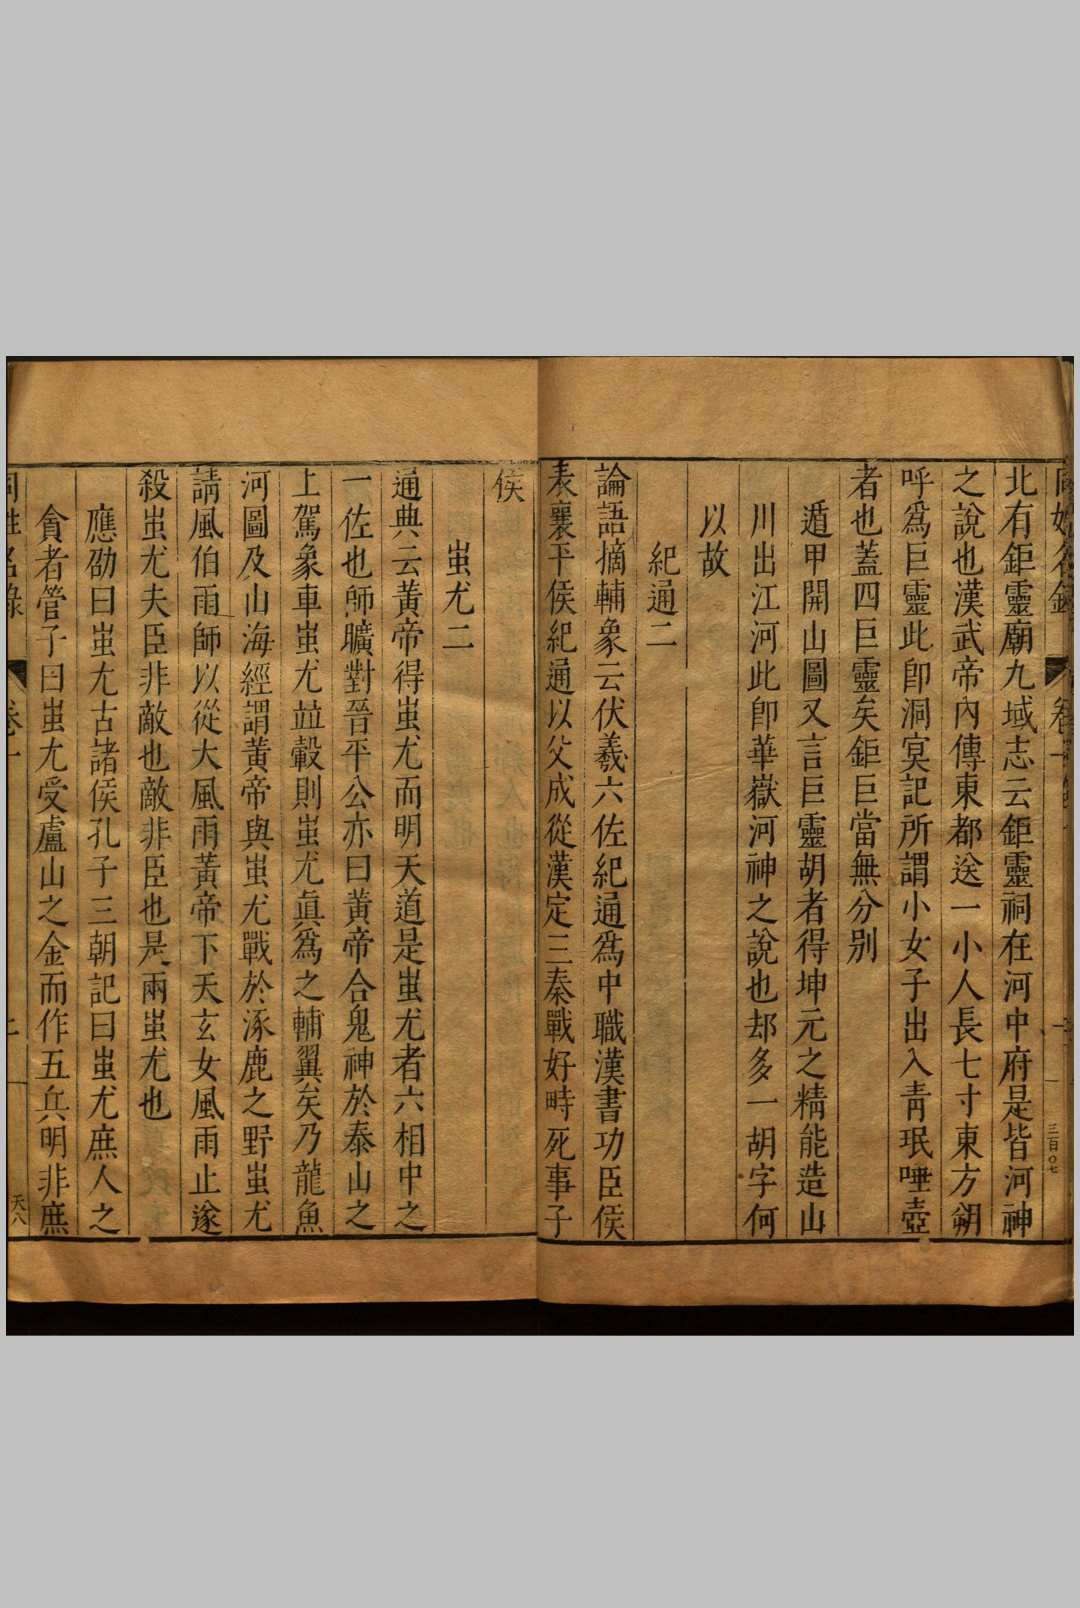 同姓名錄 卷一 三百〇七
北有鉅靈廟九域志云鉅靈祠在河中府是皆河神
之說也漢武帝內傳東都送一小人長七寸東方朔
呼爲巨靈此卽洞冥記所謂小女子出入靑珉唾壺
者也蓋四巨靈矣鉅巨當無分別
遁甲開山圖又言巨靈胡者得坤元之精能造山
川出江河此卽華嶽河神之說也却多一胡字何
以故
紀通二
論語摘輔象云伏羲六佐紀通爲中職漢書功臣侯
表襄平侯紀通以父成從漢定三秦戰好畤死事子
侯
蚩尤二
通典云黃帝得蚩尤而明天道是蚩尤者六相中之
一佐也師曠對晉平公亦曰黃帝合鬼神於泰山之
上駕象車蚩尤竝轂則蚩尤眞爲之輔翼矣乃龍魚
河圖及山海經謂黃帝與蚩尤戰於涿鹿之野蚩尤
請風伯雨師以從大風雨黃帝下天玄女風雨止遂
殺蚩尤夫臣非敵也敵非臣也是兩蚩尤也
應劭曰蚩尤古諸侯孔子三朝記曰蚩尤庶人之
貪者管子曰蚩尤受盧山之金而作五兵明非庶
同姓名錄 卷一 天八